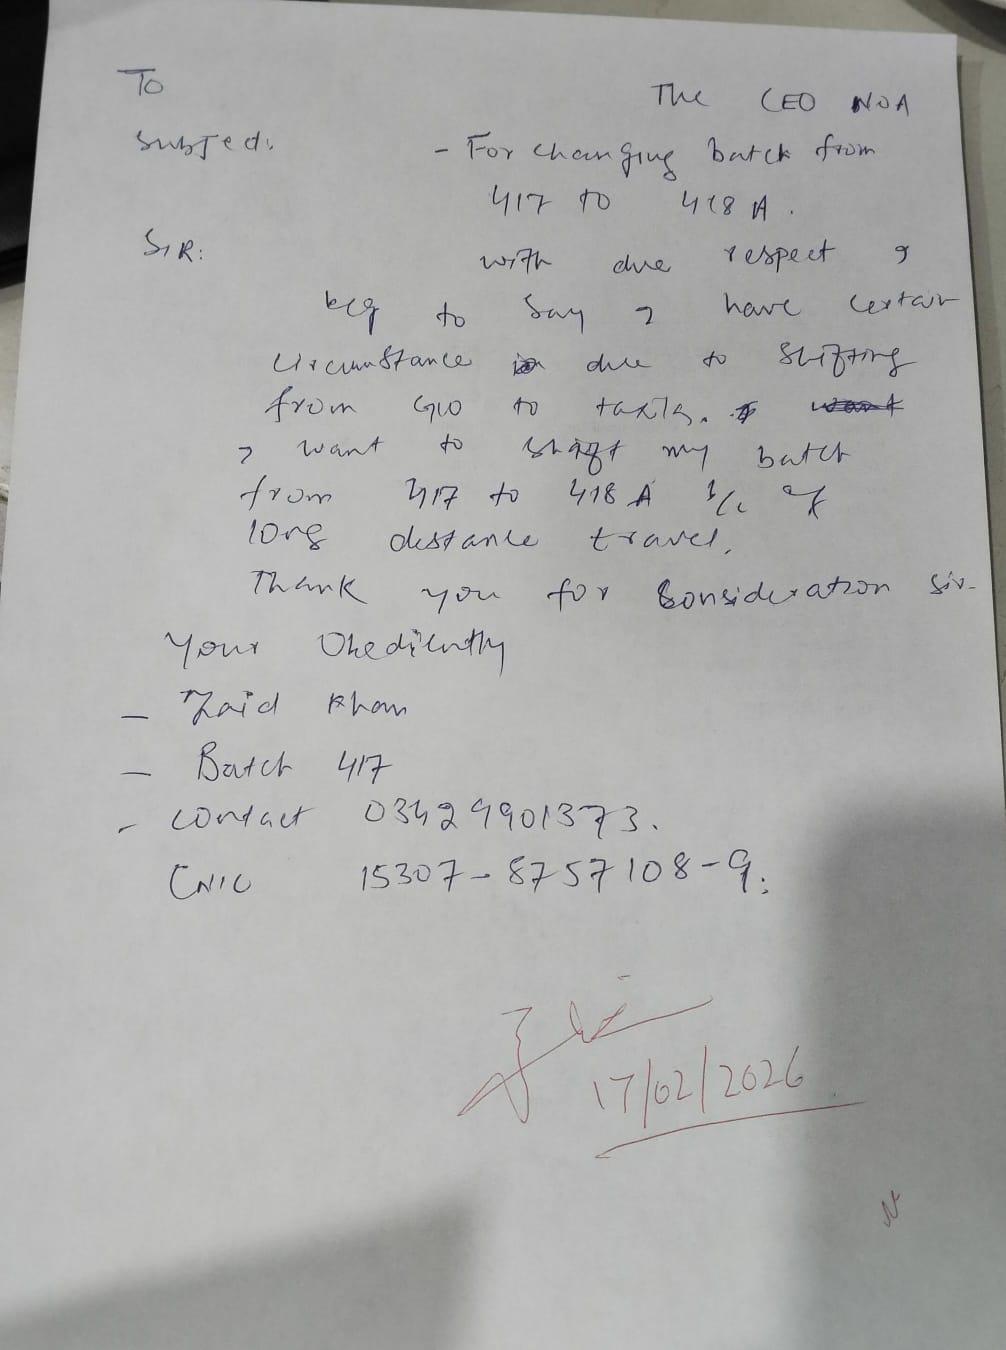 To
The CEO NOA
Subject:
- For changing batch from
417 to 418 A.
SIR:
with due respect I
beg to say I have certain
circumstance due to shifting
from GIO to taxila.
I want to shift my batch
from 417 to 418 A b/c of
long distance travel.
Thank you for Consideration sir.
Your Obediently
- Zaid Khan
- Batch 417
- contact 03429901373.
CNIC 15307-8757108-9:
17/02/2026